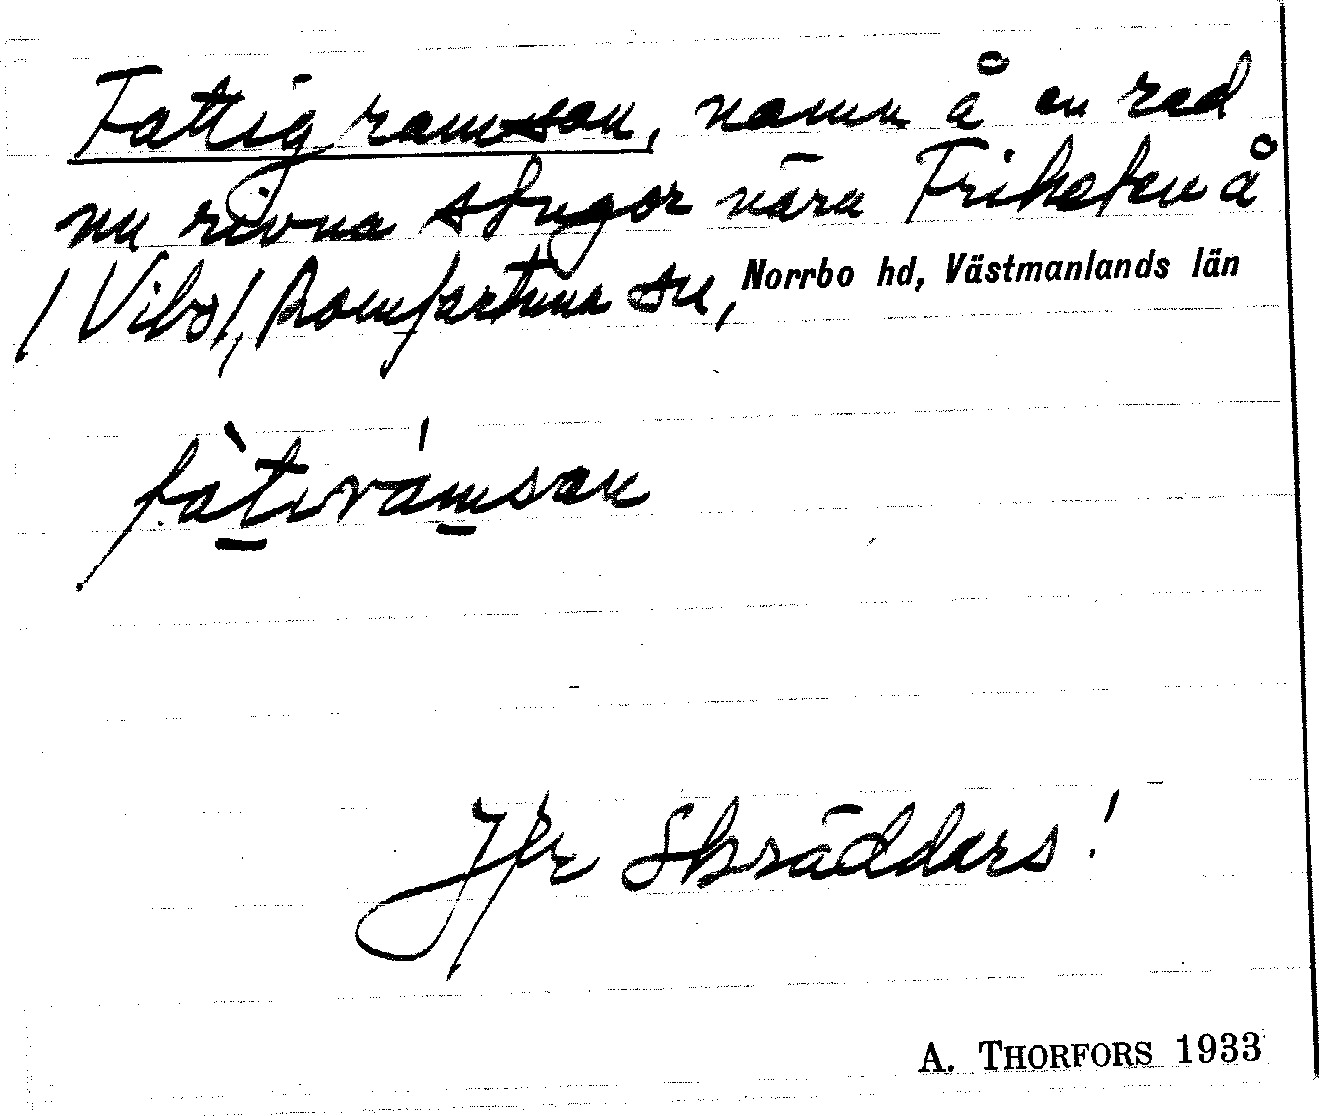 Fattigramsan, namn å en rad
nu rivna stugor nära Frikasten å
/Vibo/, Romfartuna sn, Norrbo hd, Västmanlands län
fàtırámsan
Jfr Skräddars!
A. THORFORS 1933